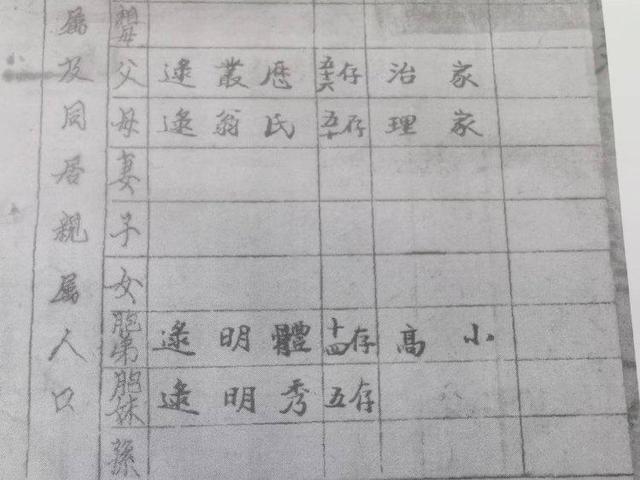 属及同居親属人口
父 逯 叢 厯 五十六 存 治 家
母 逯 翁 氏 五十 存 理 家
妻
子
女
胞弟 逯 明 體 十四 存 高 小
胞妹 逯 明 秀 五 存
孫